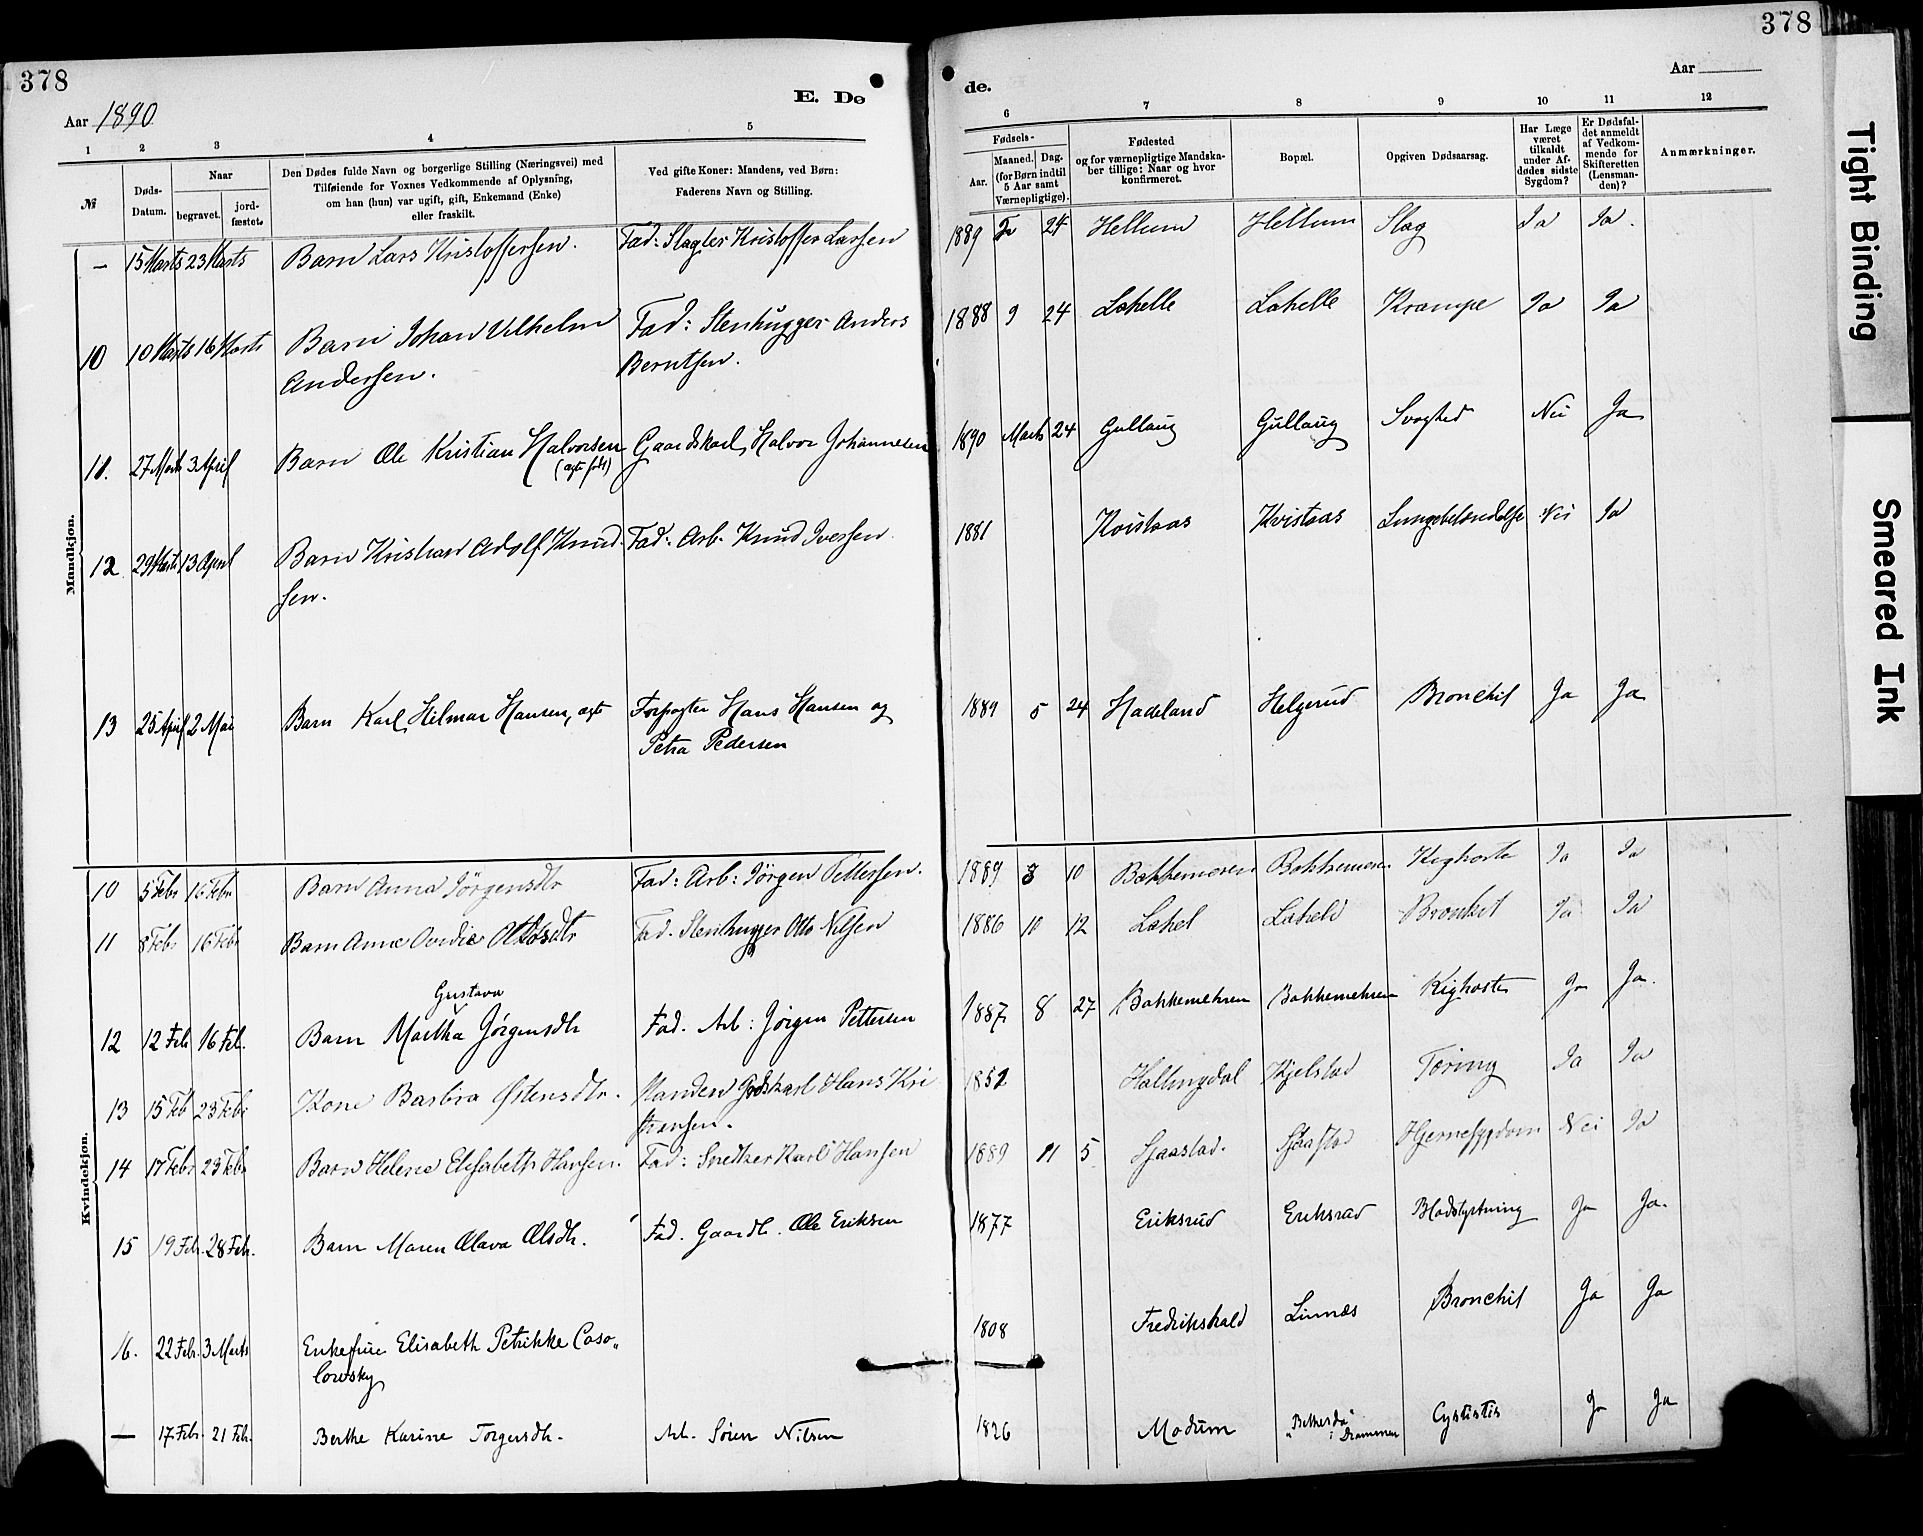 378
Aar 1890
E. De
1 2 3 4 5
№
Døds-Datum.
Naar
begravet.
jordfæstet.
Den Dødes fulde Navn og borgerlige Stilling (Næringsvei) med
Tilføiende for Voxnes Vedkommende af Oplysning,
om han (hun) var ugift, gift, Enkemand (Enke)
eller fraskilt.
Ved gifte Koner: Mandens, ved Børn:
Faderens Navn og Stilling.
Mandkjøn.
— 15 Marts 23 Marts Barn Lars Kristoffersen. Fad: Slagter Kristoffer Larsen
10 10 Marts 16 Marts Barn Johan Vilhelm Fad: Stenhugger Anders
Andersen. Berntsen.
11. 27 Marts 3 April Barn Ole Kristian Halvorsen Gaardskarl Halvor Johannesen
(ægte født)
12 29 Marts 13 April Barn Kristian Adolf Knud- Fad: Arb. Knud Iversen
sen.
13 25 April 2 Mai Barn Karl Hilmar Hansen, ægte Forpagter Hans Hansen og
Petra Pedersen
Kvindekjøn.
10 5 Febr 16 Febr Barn Anna Jörgensdtr Fad: Arb: Jörgen Pettersen.
11 8 Febr 16 Febr Barn Anna Ovidie Ottosdtr Fad. Stenhugger Otto Nilsen
Gustava
12 12 Feb 16 Feb. Barn Martha Jørgensdtr Fad. Arb: Jørgen Pettersen
13 15 Feb 23 Febr Kone Barbra Østensdtr. Manden Gdskarl Hans Kri
stiansen.
14 17 Febr 23 Febr Barn Helene Elisabeth Hansen. Fad: Snedker Karl Hansen
15 19 Feb. 28 Feb. Barn Maren Olava Olsdtr. Fad. Gaardb. Ole Eriksen
16. 22 Feb. 3 Marts Enkefrue Elisabeth Petrikke Coso„
lowsky
— 17 Feb. 21 Feb. Berthe Karine Torgersdtr. Arb. Sören Nilsen
378
de.
Aar
6 7 8 9 10 11 12
Fødsels-
Aar.
Maaned. Dag.
(for Børn indtil
5 Aar samt
Værnepligtige).
Fødested
og for værnepligtige Mandska-
ber tillige: Naar og hvor
konfirmeret.
Bopæl.
Opgiven Dødsaarsag.
Har Læge
været
tilkaldt
under Af-
dødes sidste
Sygdom?
Er Dødsfal-
det anmeldt
af Vedkom-
mende for
Skifteretten
(Lensman-
den)?
Anmærkninger.
1889 24 Hellum Hellum Slag Ja Ja.
1888 9 24 Lahelle Lahelle Krampe Ja Ja
1890 Marts 24 Gullaug Gullaug Svaghed Nei Ja
1881 Kvistaas Kvistaas Lungebetændelse Nei Ja
1889 5 24 Hadeland Helgerud Bronchit Ja Ja
1889 3 10 Bakkemoren Bakkemoren Kighoste Ja Ja
1886 10 12 Lahel Lahell Bronkit Ja Ja
1887 8 27 Bakkemehren Bakkemehren Kighoste Ja Ja.
1852 Hallingdal Kjelstad Tæring Ja Ja
1889 11 5 Sjaastad. Sjaastad Hjernesygdom Nei Ja
1877 Eriksrud Eriksrud Blodstyrtning Ja Ja.
1808 Fredrikshald Linnæs Bronchit Ja Ja
1826 Modum „Bethesda“ Cystistis Ja Ja
i Drammen
Tight Binding
Smeared Ink